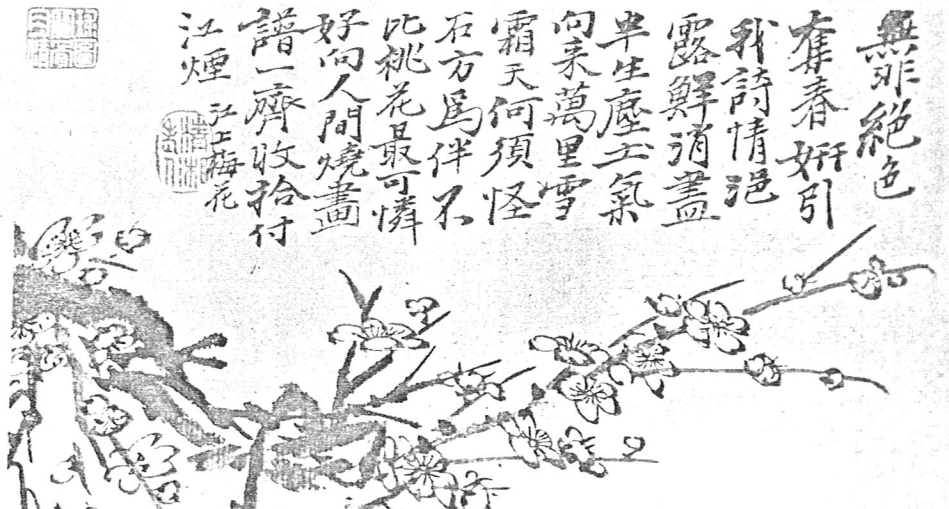 無非絕色
奪春妍引
我詩情浥
露鮮消盡
半生塵土氣
向来萬里雪
霜天何須怪
石方爲伴不
比桃花最可憐
好向人間燒畫
譜一齊收拾付
江煙
江上梅花